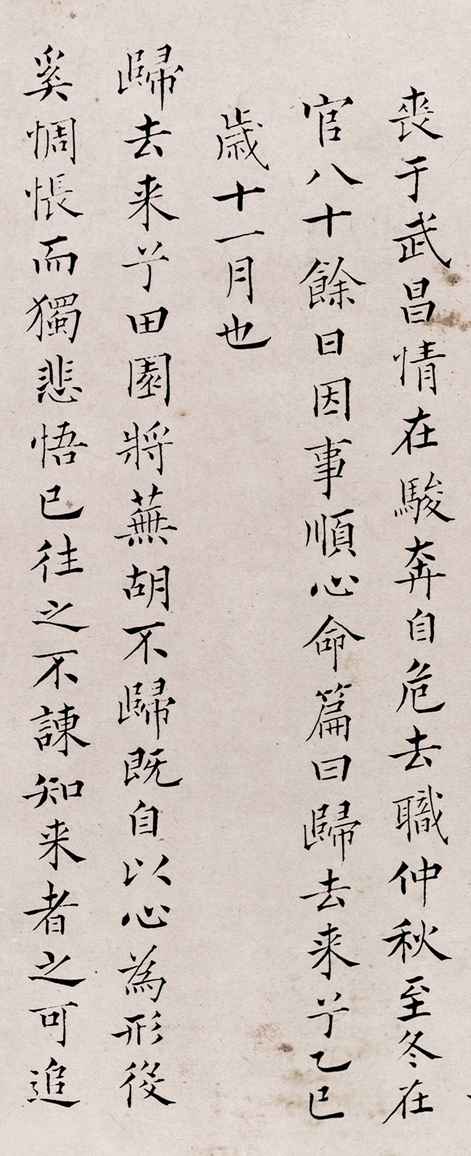 喪于武昌情在駿奔自危去職仲秋至冬在
官八十餘日因事順心命篇曰歸去来兮乙巳
歲十一月也
歸去来兮田園將蕪胡不歸既自以心為形役
奚惆悵而獨悲悟已往之不諫知来者之可追